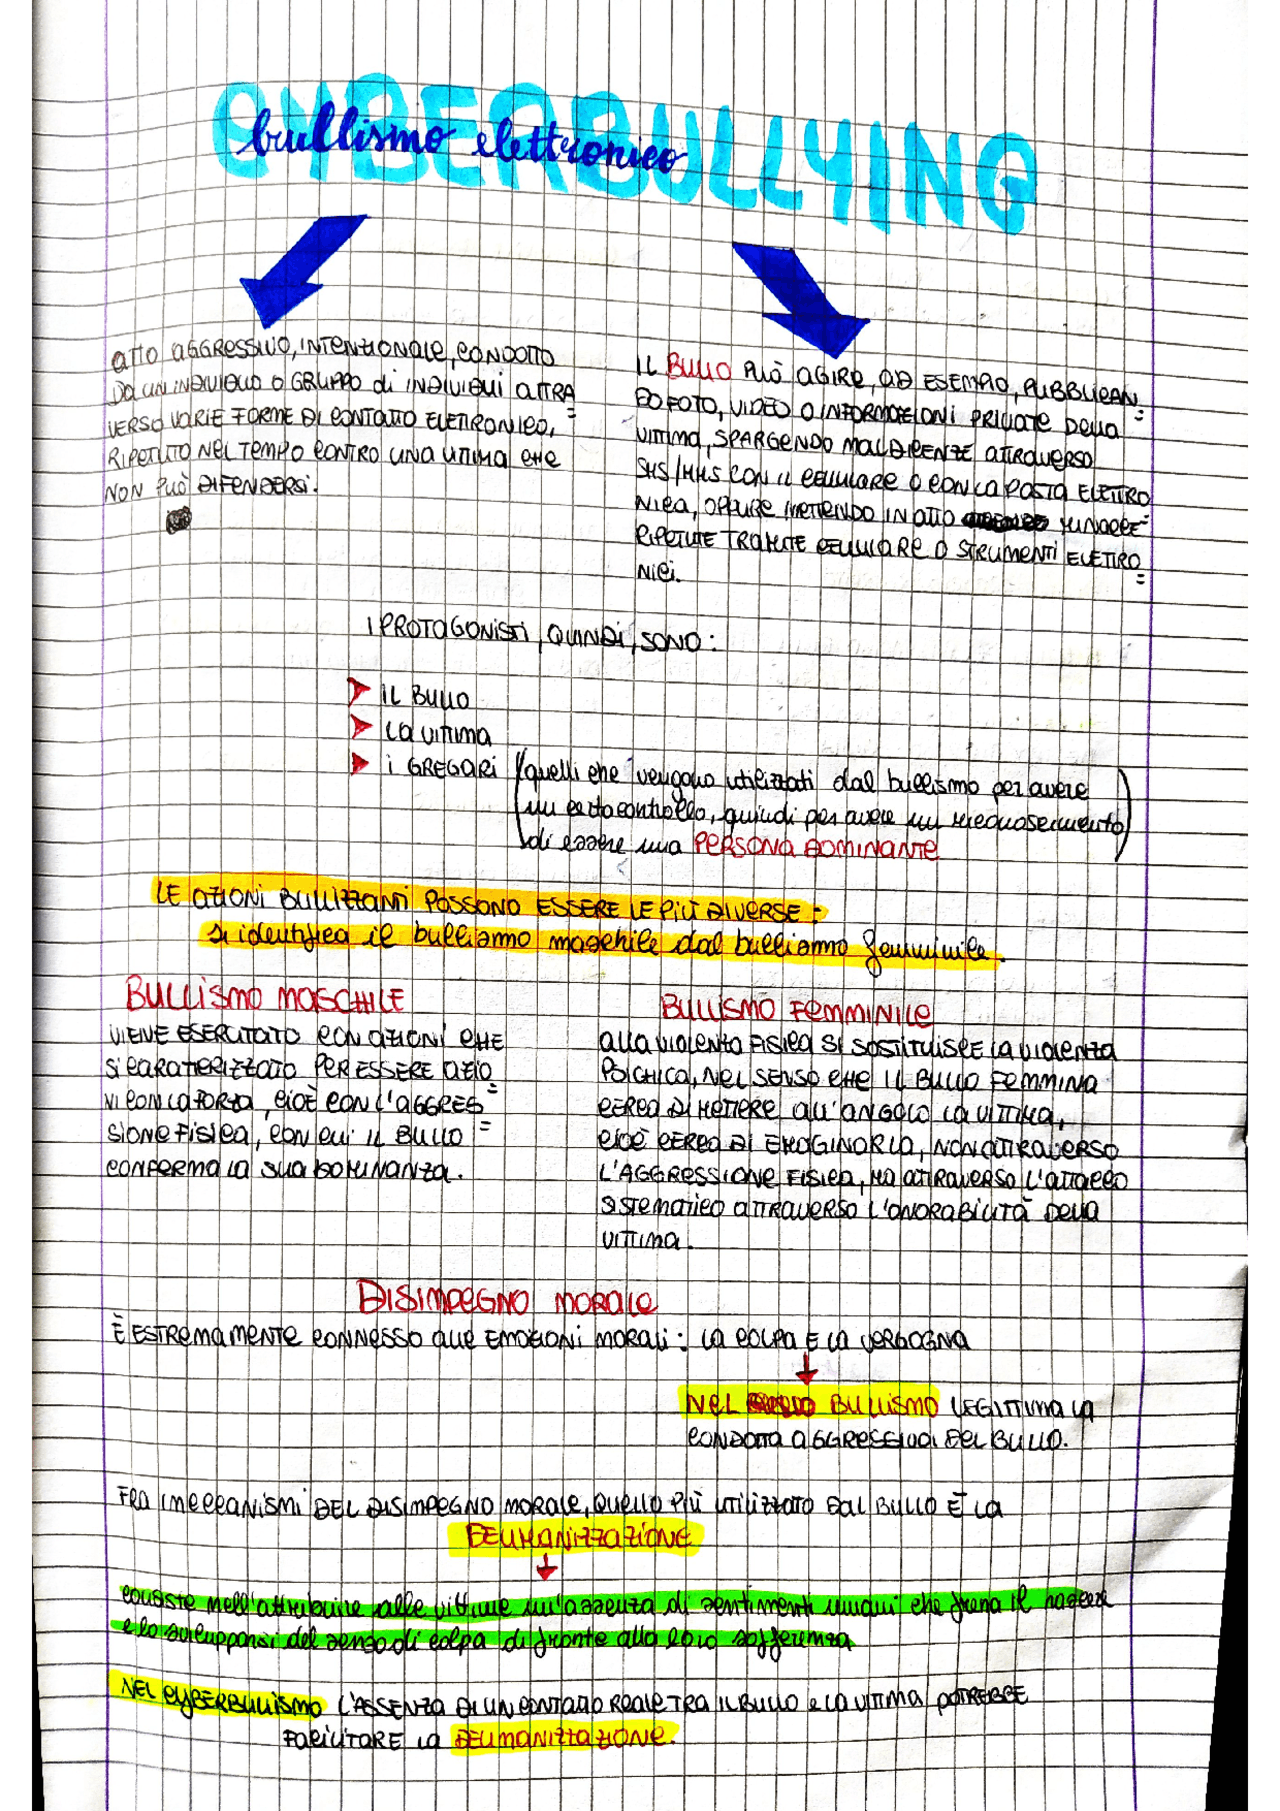 CYBERBULLYING
bullismo elettronico
ATTO AGGRESSIVO, INTENZIONALE, CONDOTTO
DA UN INDIVIDUO O GRUPPO di INDIVIDUI ATTRA=
VERSO VARIE FORME DI CONTATTO ELETTRONICO,
RIPETUTO NEL TEMPO CONTRO UNA VITTIMA CHE
NON PUÒ DIFENDERSI.
IL BULLO PUÒ AGIRE, AD ESEMPIO, PUBBLICAN=
DO FOTO, VIDEO O INFORMAZIONI PRIVATE DELLA
VITTIMA, SPARGENDO MALDICENZE ATTRAVERSO
SMS/MMS CON IL CELLULARE O CON LA POSTA ELETTRO=
NICA, OPPURE METTENDO IN ATTO MINACCE
RIPETUTE TRAMITE CELLULARE O STRUMENTI ELETTRO=
NICI.
I PROTAGONISTI, QUINDI, SONO:
IL BULLO
LA VITTIMA
i GREGARI (quelli che vengono utilizzati dal bullismo per avere
un certo controllo, quindi per avere un riconoscimento
di essere una PERSONA DOMINANTE)
LE AZIONI BULLIZZANTI POSSONO ESSERE LE PIÙ DIVERSE:
si identifica il bullismo maschile dal bullismo femminile.
BULLISMO MASCHILE
VIENE ESERCITATO CON AZIONI CHE
SI CARATTERIZZATO PER ESSERE AZIO=
NI CON LA FORZA, CIOÈ CON L'AGGRES=
SIONE FISICA, CON CUI IL BULLO
CONFERMA LA SUA DOMINANZA.
BULLISMO FEMMINILE
ALLA VIOLENZA FISICA SI SOSTITUISCE LA VIOLENZA
PSICHICA, NEL SENSO CHE IL BULLO FEMMINA
CERCA DI METTERE ALL'ANGOLO LA VITTIMA,
CIOÈ CERCA DI EMAGINARLA, NON ATTRAVERSO
L'AGGRESSIONE FISICA, MA ATTRAVERSO L'ATTACCO
SISTEMATICO ATTRAVERSO L'ONORABILITÀ DELLA
VITTIMA.
DISIMPEGNO MORALE
È ESTREMAMENTE CONNESSO ALLE EMOZIONI MORALI: LA COLPA E LA VERGOGNA
NEL BULLISMO LEGITTIMA LA
CONDOTTA AGGRESSIVA DEL BULLO.
FRA I MECCANISMI DEL DISIMPEGNO MORALE, QUELLO PIÙ UTILIZZATO DAL BULLO È LA
DEUMANIZZAZIONE
consiste nell'attribuire alle vittime un'assenza di sentimenti umani che frena il nascere
e lo svilupparsi del senso di colpa di fronte alla loro sofferenza
NEL CYBERBULLISMO L'ASSENZA DI UN CONTATTO REALE TRA IL BULLO E LA VITTIMA POTREBBE
FACILITARE LA DEUMANIZZAZIONE.